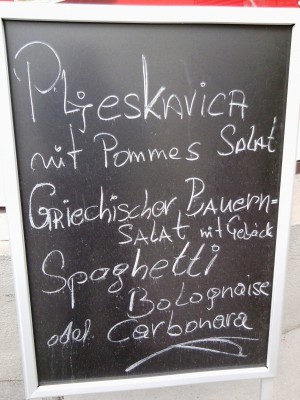 Pljeskavica
mit Pommes Salat
Griechischer Bauern=
Salat mit Gebäck
Spaghetti
Bolognaise
oder Carbonara